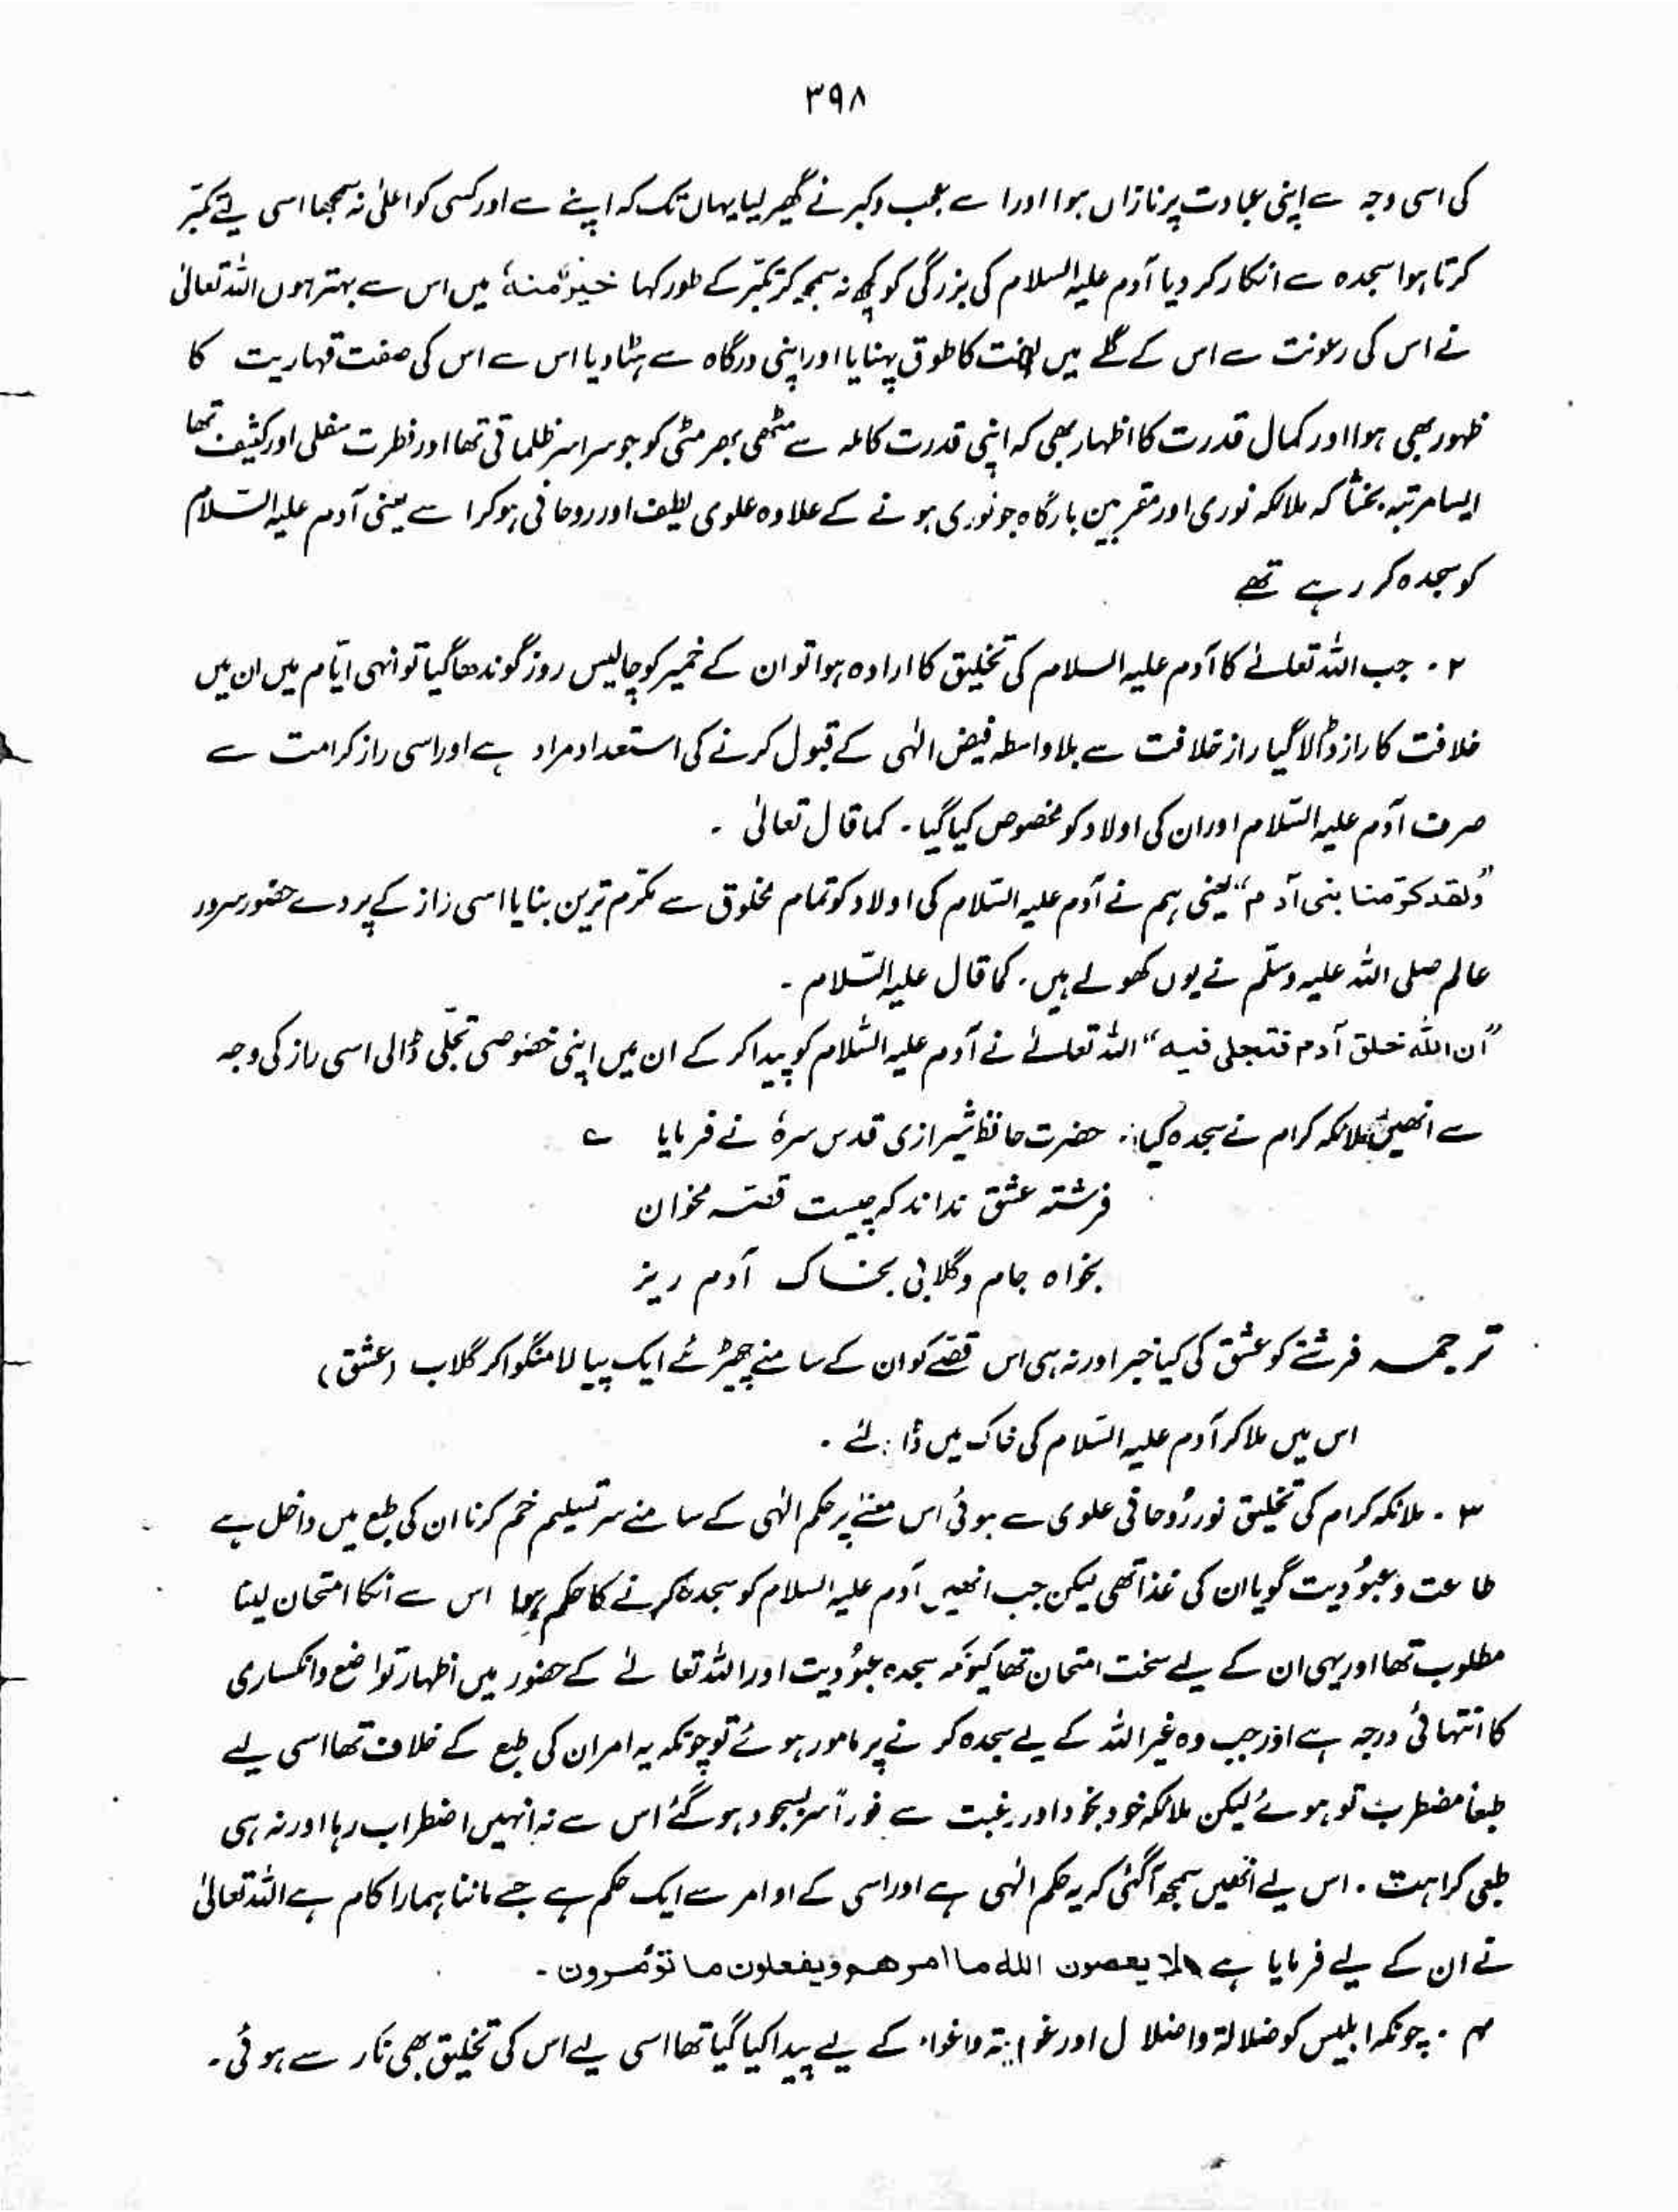 ۳۹۸
کی اسی وجہ سے اپنی عبادت پر نازاں ہوا اور اسے عجب و کبر نے گھیر لیا یہاں تک کہ اپنے سے اور کسی کو اعلیٰ نہ سمجھا اسی لیے تکبّر
کرتا ہوا سجدہ سے انکار کر دیا آدم علیہ السلام کی بزرگی کو کچھ نہ سمجھ کر تکبّر کے طور کہا خیرٌ منہٗ میں اس سے بہتر ہوں اللہ تعالیٰ
نے اس کی رعونت سے اس کے گلے میں لعنت کا طوق پہنایا اور اپنی درگاہ سے ہٹا دیا اس سے اس کی صفت قہاریت کا
ظہور بھی ہوا اور کمال قدرت کا اظہار بھی کہ اپنی قدرت کاملہ سے مٹھی بھر مٹی کو جو سراسر ظلماتی تھا اور فطرت سفلی اور کثیف تھا
ایسا مرتبہ بخشا کہ ملائکہ نوری اور مقربین بارگاہ جو نوری ہونے کے علاوہ علوی لطیف اور روحانی ہو کر اسے یعنی آدم علیہ السّلام
کو سجدہ کر رہے تھے
۲ ۔ جب اللہ تعالےٰ کا آدم علیہ السلام کی تخلیق کا ارادہ ہوا تو ان کے خمیر کو چالیس روز گوندھا گیا تو انہی ایّام میں ان میں
خلافت کا راز ڈالا گیا راز خلافت سے بلاواسطہ فیض الٰہی کے قبول کرنے کی استعداد مراد ہے اور اسی راز کرامت سے
صرف آدم علیہ السّلام اور ان کی اولاد کو مخصوص کیا گیا ۔ کما قال تعالیٰ ۔
”ولقد کرّمنا بنی آدم“ یعنی ہم نے آدم علیہ السّلام کی اولاد کو تمام مخلوق سے مکرّم ترین بنایا اسی راز کے پردے حضور سرور
عالم صلی اللہ علیہ وسلّم نے یوں کھولے ہیں ۔ کما قال علیہ السّلام ۔
”ان اللہ خلق آدم فتجلی فیہ“ اللہ تعالےٰ نے آدم علیہ السّلام کو پیدا کر کے ان میں اپنی خصوصی تجلّی ڈالی اسی راز کی وجہ
سے انھیں ملائکہ کرام نے سجدہ کیا ۔ حضرت حافظ شیرازی قدس سرہٗ نے فرمایا ؎
فرشتہ عشق نداند کہ چیست قصّہ مخوان
بخواہ جام و گلابی بخاک آدم ریز
ترجمہ فرشتے کو عشق کی کیا خبر اور نہ ہی اس قصّے کو ان کے سامنے چھیڑئے ایک پیالا منگوا کر گلاب (عشق)
اس میں ملا کر آدم علیہ السّلام کی خاک میں ڈالئے ۔
۳ ۔ ملائکہ کرام کی تخلیق نور رُوحانی علوی سے ہوئی اس معنےٰ پر حکم الٰہی کے سامنے سر تسلیم خم کرنا ان کی طبع میں داخل ہے
طاعت و عبوُدیت گویا ان کی غذا تھی لیکن جب انھیں آدم علیہ السلام کو سجدہ کرنے کا حکم ہوا اس سے انکا امتحان لینا
مطلوب تھا اور یہی ان کے لیے سخت امتحان تھا کیونکہ سجدہ عبوُدیت اور اللہ تعالےٰ کے حضور میں اظہار تواضع و انکساری
کا انتہائی درجہ ہے اور جب وہ غیر اللہ کے لیے سجدہ کرنے پر مامور ہوئے تو چونکہ یہ امر ان کی طبع کے خلاف تھا اسی لیے
طبعاً مضطرب تو ہوئے لیکن ملائکہ خود بخود اور رغبت سے فوراً سر بسجود ہو گئے اس سے نہ انہیں اضطراب رہا اور نہ ہی
طبعی کراہت ۔ اس لیے انھیں سمجھ آگئی کہ یہ حکم الٰہی ہے اور اسی کے اوامر سے ایک حکم ہے جسے ماننا ہمارا کام ہے اللہ تعالیٰ
نے ان کے لیے فرمایا ہے لا یعصون اللہ ما امرھم ویفعلون ما تؤمرون ۔
۴ ۔ چونکہ ابلیس کو ضلالۃ واضلال اور غوایتہ واغواء کے لیے پیدا کیا گیا تھا اسی لیے اس کی تخلیق بھی نار سے ہوئی ۔